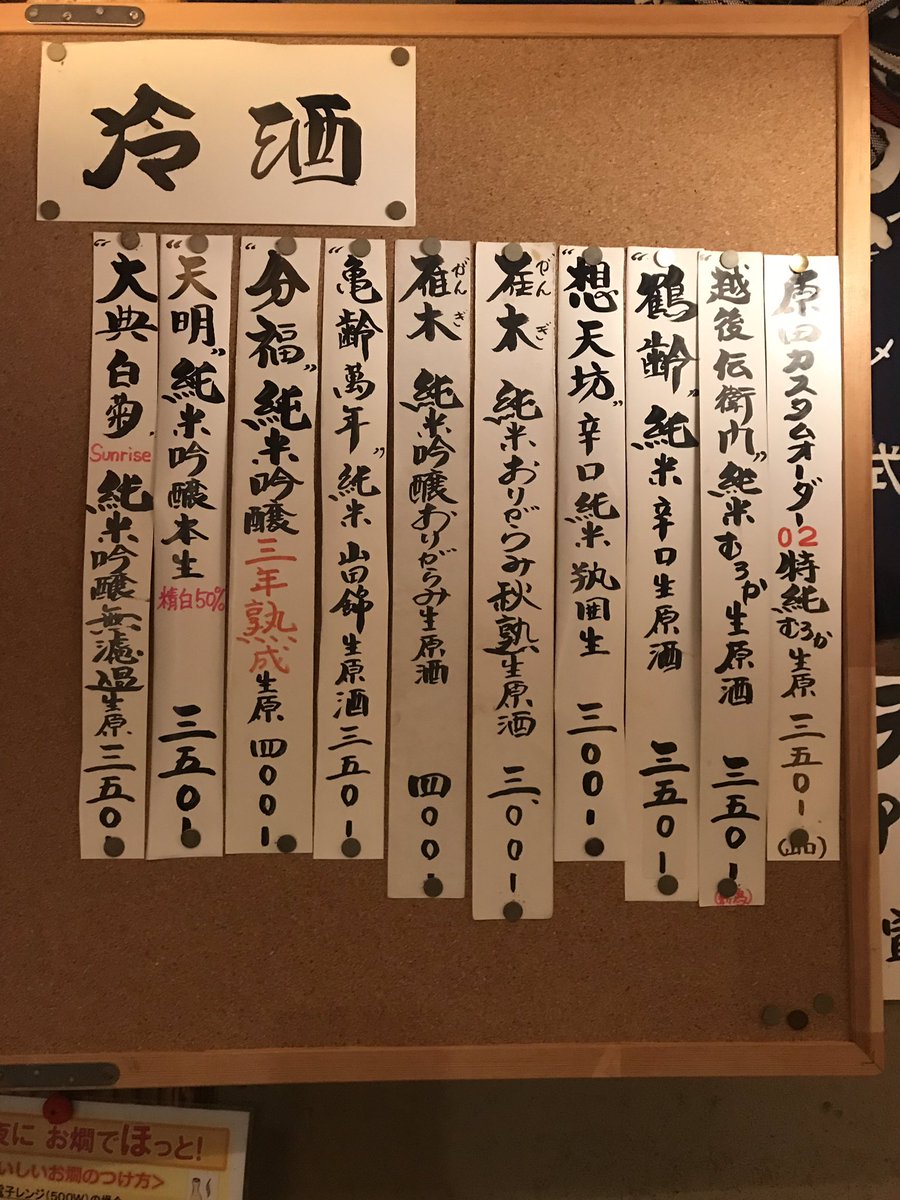 冷酒
原田カスタムオーダー02特純むろか生原 三五〇-
(山口)
"越後伝衛門"純米むろか生原酒 三五〇-
(新潟)
"鶴齢"純米辛口生原酒 三五〇-
"想天坊"辛口純米瓶囲生 三〇〇-
雁木 純米おりがらみ秋熟生原酒 三〇〇-
がんぎ
雁木 純米吟醸おりがらみ生原酒 四〇〇-
がんぎ
"亀齢萬年"純米 山田錦生原酒 三五〇-
"分福"純米吟醸三年熟成生原 四〇〇-
"天明"純米吟醸本生 精白50% 三五〇-
"大典白菊" Sunrise 純米吟醸無濾過生原 三五〇-
夜に お燗でほっと!
いしいお燗のつけ方>
電子レンジ(500W)の場合